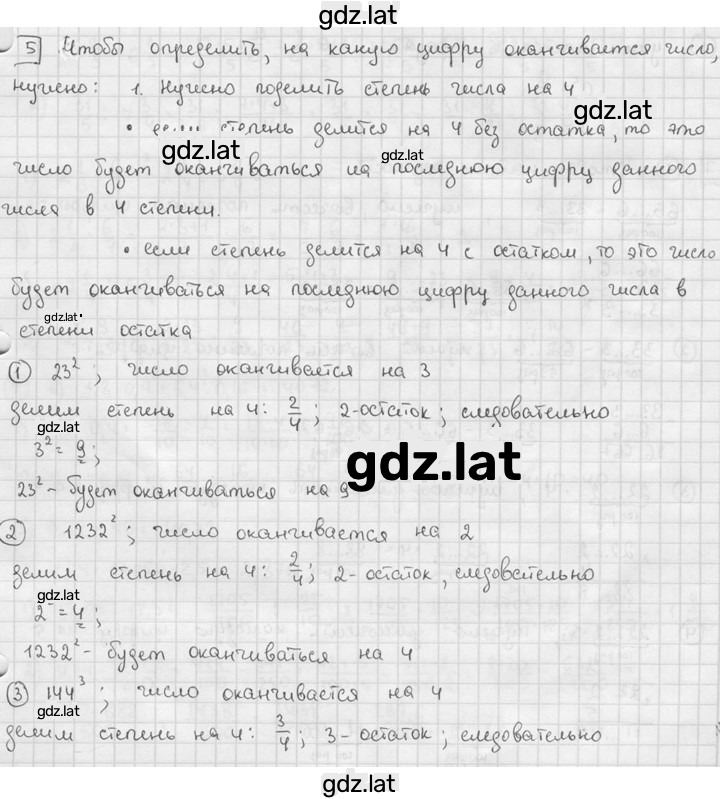 gdz.lat
5 Чтобы определить, на какую цифру оканчивается число,
нужно: 1. Нужно поделить степень числа на 4
gdz.lat
• если степень делится на 4 без остатка, то это
gdz.lat gdz.lat
число будет оканчиваться на последнюю цифру данного
числа в 4 степени.
• если степень делится на 4 с остатком, то это число
будет оканчиваться на последнюю цифру данного числа в
gdz.lat
степени остатка
1 23²; число оканчивается на 3
делим степень на 4: 2/4; 2-остаток; следовательно
gdz.lat
3² = 9;
gdz.lat
23² - будет оканчиваться на 9
2 1232²; число оканчивается на 2
делим степень на 4: 2/4; 2-остаток, следовательно
gdz.lat
2² = 4;
1232² - будет оканчиваться на 4
3 144³; число оканчивается на 4
gdz.lat
делим степень на 4: 3/4; 3-остаток; следовательно
gdz.lat